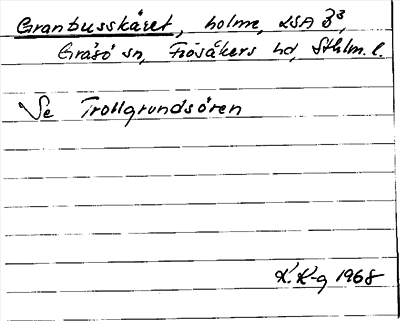 Granbusskäret, holme, LSA 33
Gräsö sn, Frösåkers hd, Sthlm. l.
Se Trollgrundsören
K. K-g 1968